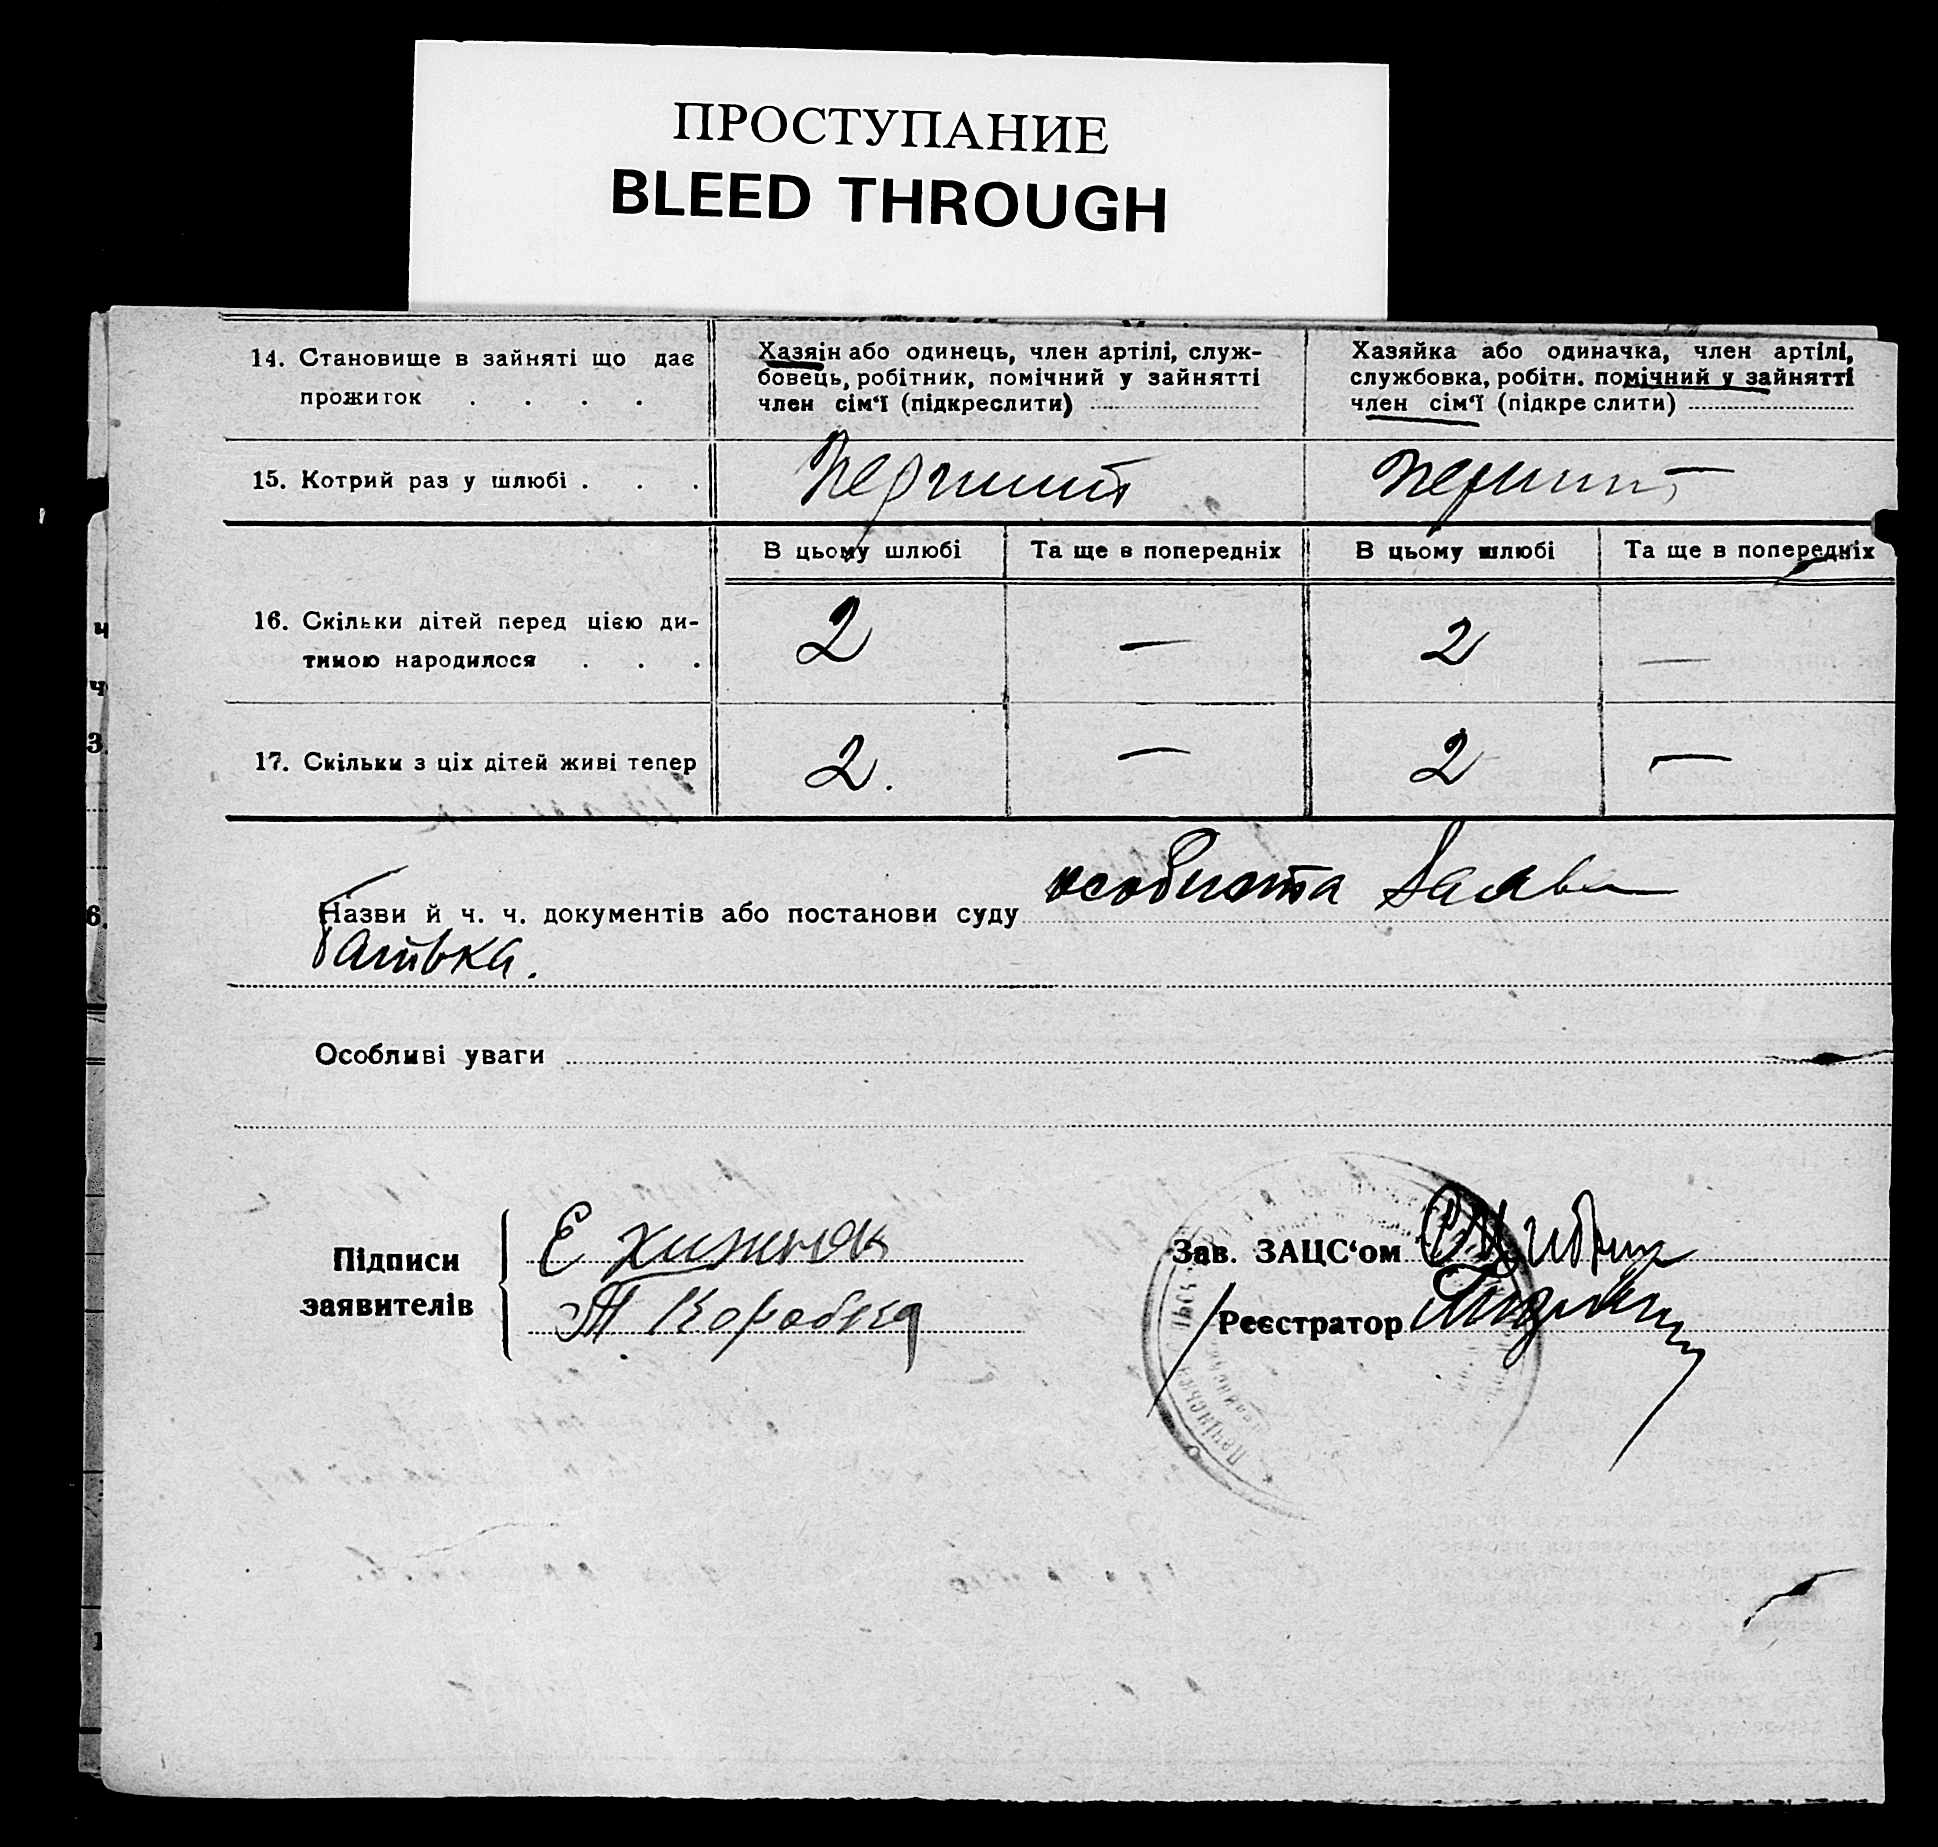 ПРОСТУПАНИЕ
BLEED THROUGH
14. Становище в зайняті що дає
прожиток . . . .
Хазяїн або одинець, член артілі, служ-
бовець, робітник, помічний у зайнятті
член сім'ї (підкреслити)
Хазяйка або одиначка, член артілі,
службовка, робітн. помічний у зайнятті
член сім'ї (підкреслити)
15. Котрий раз у шлюбі . . .
Перший
перший
В цьому шлюбі
Та ще в попередніх
В цьому шлюбі
Та ще в попередніх
16. Скільки дітей перед цією ди-
тиною народилося . . .
2
—
2
—
17. Скільки з ціх дітей живі тепер
2.
—
2
—
Назви й ч. ч. документів або постанови суду особиста заява
батька.
Особливі уваги
Підписи
заявителів
Е Хижняк
Т Коробка
Зав. ЗАЦС'ом
Реєстратор
ч
ч
3.
6.